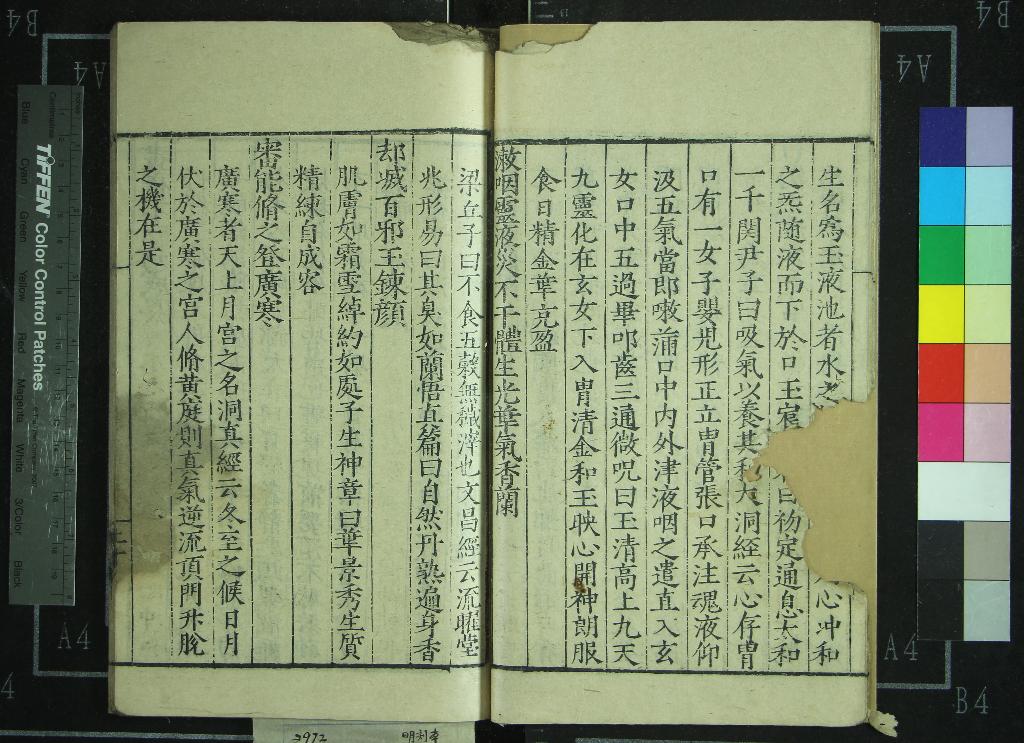 生名爲玉液池者水之 心冲和
之炁随液而下於口玉 曰礿定通息太和
一千関尹子曰吸氣以養其 大洞經云心存胃
口有一女子嬰児形正立胃管張口承注魂液仰
汲五氣當即嗽滿口中内外津液咽之遣直入玄
女口中五過畢叩齒三通微呪曰玉清高上九天
九靈化在玄女下入胃清金和玉映心開神朗服
食日精金華充盈
漱咽靈液災不干體生光華氣香蘭
梁丘子曰不食五穀無穢滓也文昌經云流曜堂
兆形易曰其臭如蘭悟真篇曰自然丹熟遍身香
却㓕百邪玉鍊顔
肌膚如霜雪綽約如處子生神章曰華景秀生質
精練自成容
審能脩之登廣寒
廣寒者天上月宮之名洞真經云冬至之候日月
伏於廣寒之宮人脩黄庭則真氣逆流頂門升脫
之機在是
B4
A4
B4
A4
A4
A4
4
B4
TIFFEN Color Control Patches
Centimetres
Blue
Cyan
Green
Yellow
Red
Magenta
White
3/Color
Black
2972
明刊本